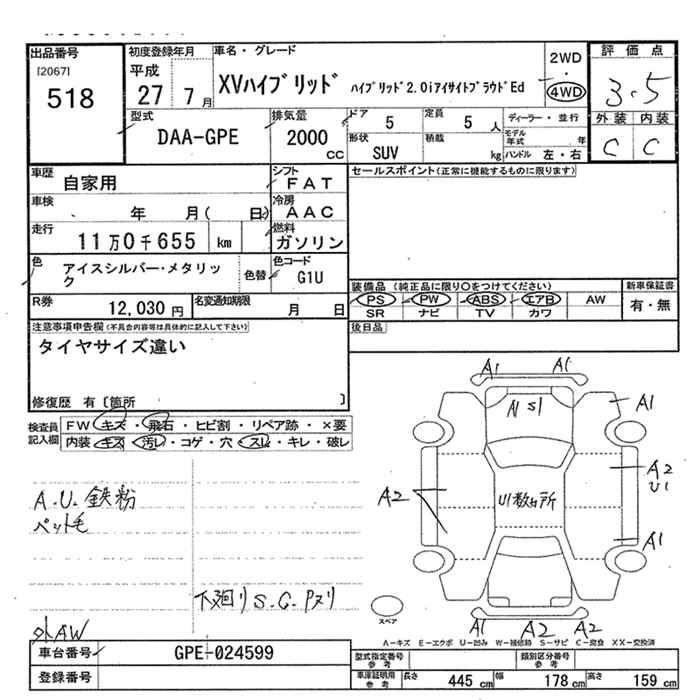 出品番号
[2067]
518
初度登録年月
平成
27 7月
車名・グレード
XVハイブリッド ハイブリッド2.0iアイサイトプラウドEd
2WD
・
4WD
評価点
3.5
外装 内装
C C
型式
DAA-GPE
排気量
2000
cc
ドア
5
定員
5 人
形状
SUV
積載
kg
ディーラー・並行
モデル年式 年
ハンドル 左・右
車歴
自家用
シフト
FAT
車検
年 月( 日)
冷房
AAC
走行
11万0千655 km
燃料
ガソリン
色
アイスシルバー・メタリック
色替
色コード
G1U
R券
12,030円
名変通知期限
月 日
セールスポイント(正常に機能するものに限ります)
装備品 (純正品に限り○をつけてください)
PS PW ABS エアB AW
SR ナビ TV カワ
新車保証書
有・無
後日品
注意事項申告欄(不具合内容等は具体的に記入して下さい)
タイヤサイズ違い
修復歴 有〔箇所 〕
検査員記入欄
FW キズ・飛石・ヒビ割・リペア跡・×要
内装 キズ・汚レ・コゲ・穴・スレ・キレ・破レ
A.U.鉄粉
ペット毛
下廻りS.C.Pヌリ
外AW
A1 A1
A1 S1
A1
A2
U1
A2
U1数ヶ所
A1
A1 A2 A2
スペア
A-キズ E-エクボ U-凹み W-補修跡 S-サビ C-腐食 XX-交換済
車台番号
GPE-024599
登録番号
型式指定番号
参考
類別区分番号
参考
車庫証明用
参考
長さ 445 cm 幅 178 cm 高さ 159 cm